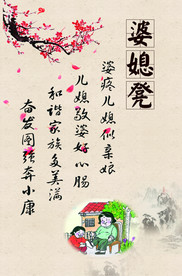 婆媳凳
婆疼儿媳似亲娘
儿媳敬婆好心肠
和谐家族多美满
奋发图强奔小康